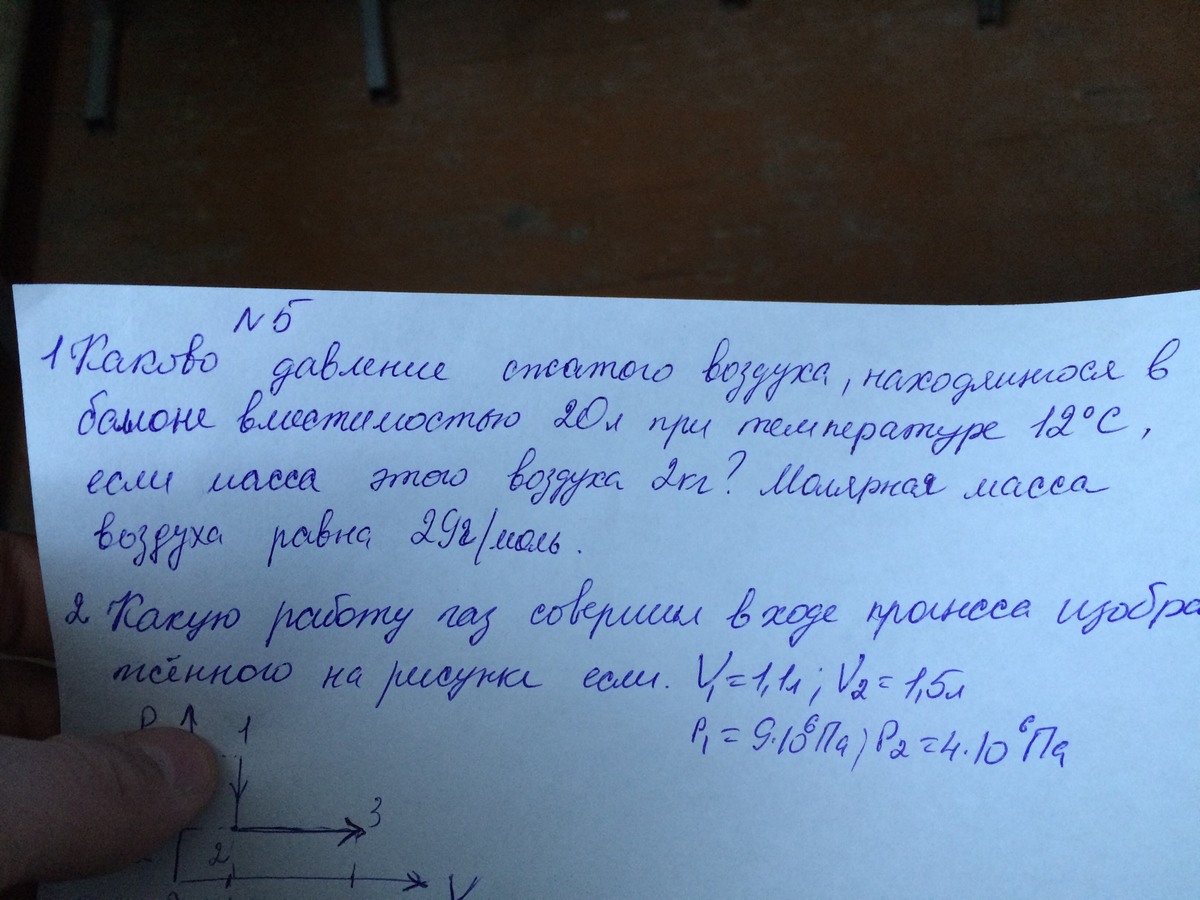 N 5
1 Каково давление сжатого воздуха, находящегося в
баллоне вместимостью 20л при температуре 12°С,
если масса этого воздуха 2кг? Молярная масса
воздуха равна 29г/моль.
2 Какую работу газ совершил в ходе процесса изобра
жённого на рисунке если. V₁=1,1л; V₂=1,5л
P₁=9·10⁶Па; P₂=4·10⁶Па
P 1
3
2
V